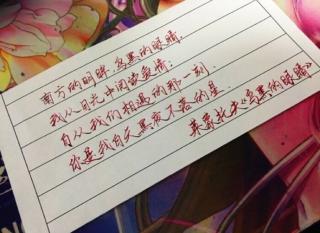 南方的明眸,乌黑的眼睛,
我从目光中阅读爱情;
自从我们相遇的那一刻
你是我白天黑夜不落的星.
莱蒙托夫《乌黑的眼睛》